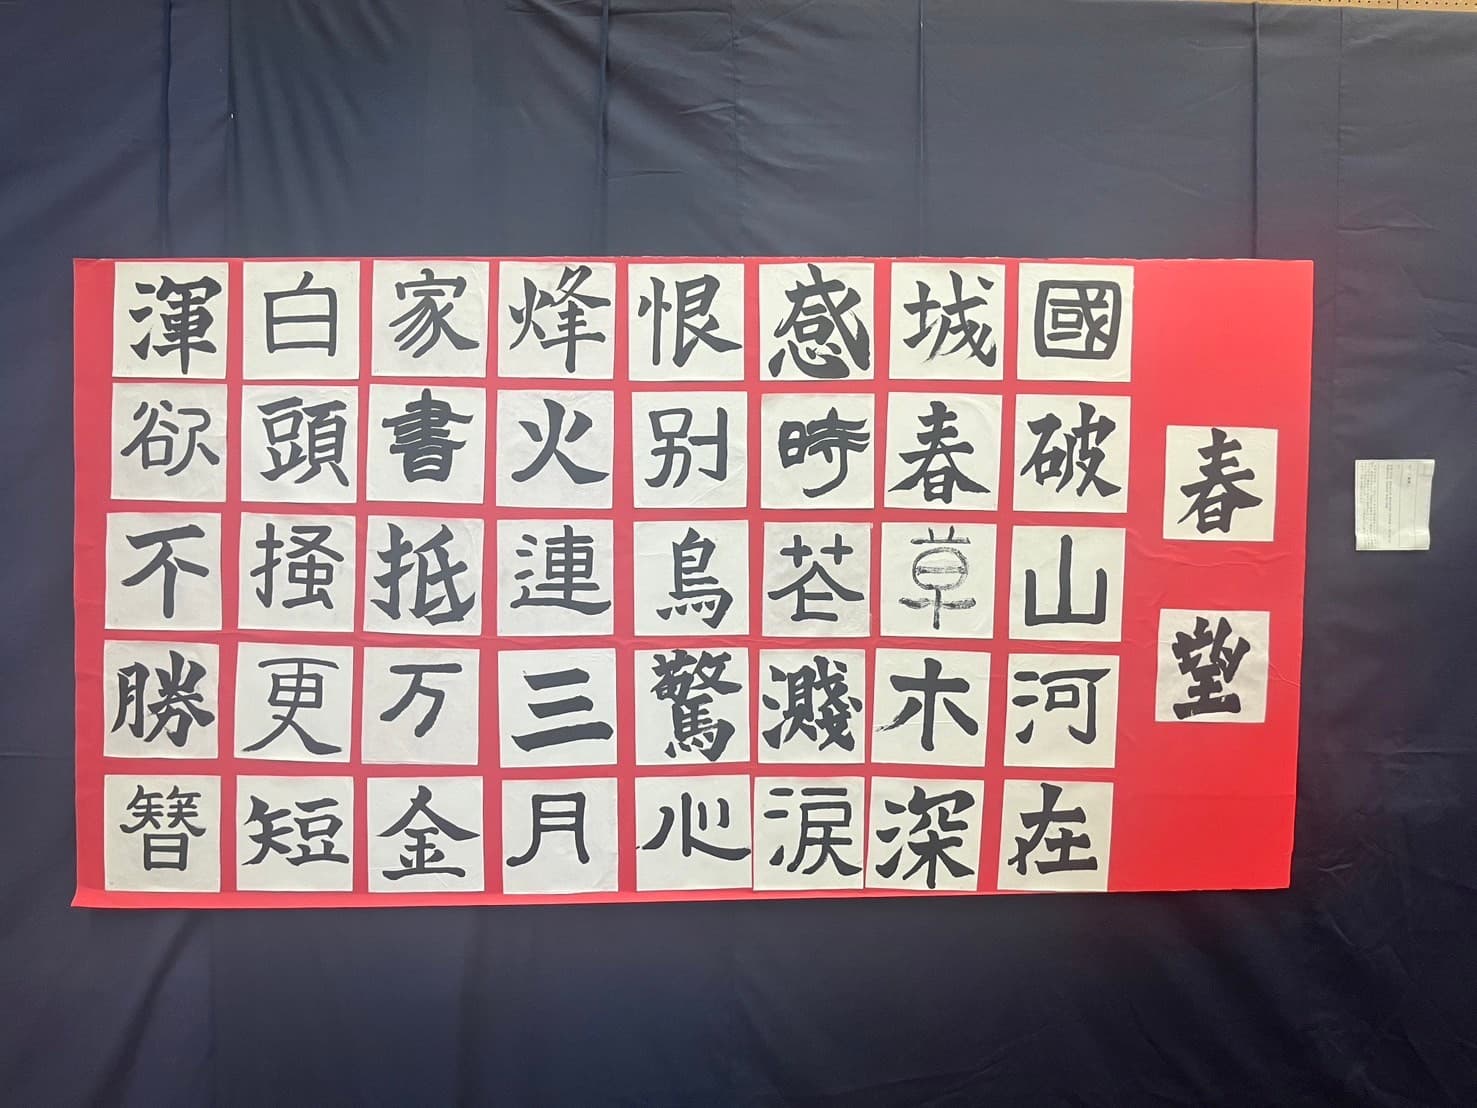 春望
國破山河在
城春草木深
感時花濺淚
恨別鳥驚心
烽火連三月
家書抵万金
白頭搔更短
渾欲不勝簪